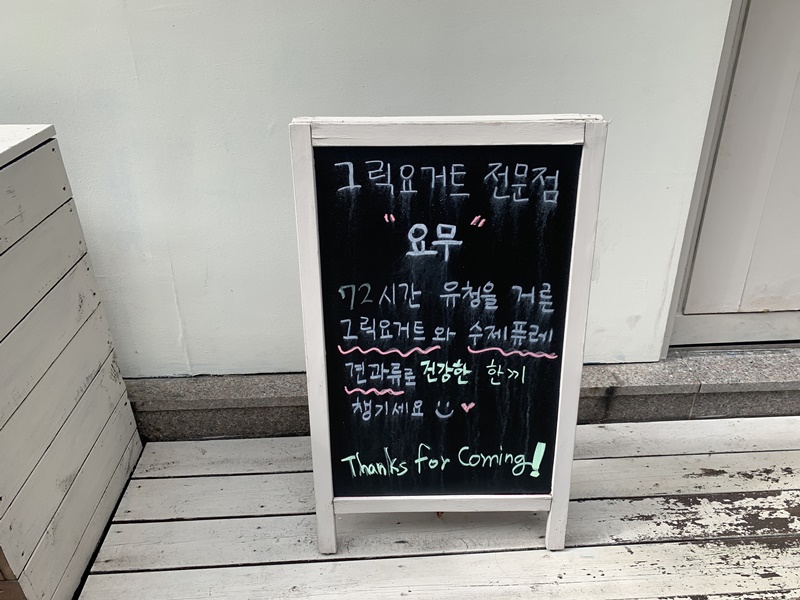 그릭요거트 전문점
"요무"
72시간 유청을 거른
그릭요거트와 수제퓨레
견과류로 건강한 한끼
챙기세요
Thanks for Coming!